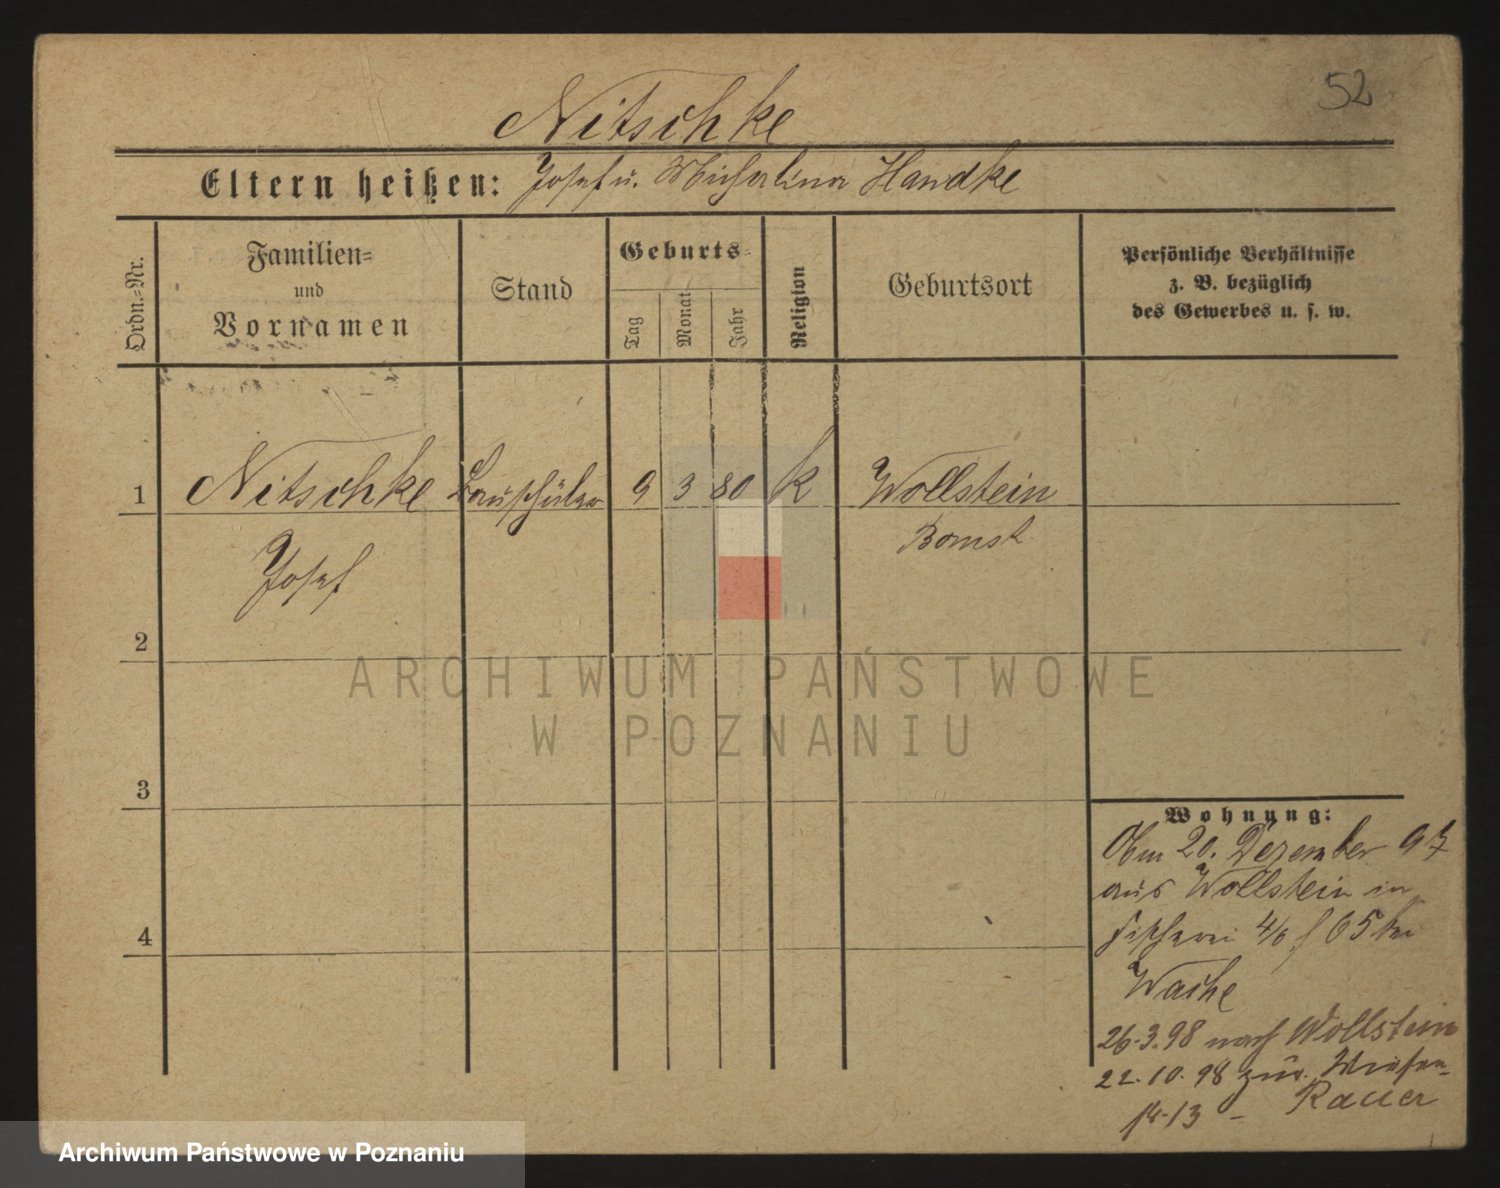 52
Nitschke
Eltern heißen: Josef u. Michalina Handke
Ordn.=Nr.
Familien=
und
Vornamen
Stand
Geburts=
Tag
Monat
Jahr
Religion
Geburtsort
Persönliche Verhältnisse
z. B. bezüglich
des Gewerbes u. s. w.
1 Nitschke Bauschüler 9 3 80 k Wollstein
Josef
Bomst
2
3
4
Wohnung:
20. Dezember 97
aus Wollstein in
Fischerei 4/6 bei
26.3.98 nach Wollstein
22.10.98 zur. Wiesen-
13 - Rauer
ARCHIWUM PAŃSTWOWE
W POZNANIU
Archiwum Państwowe w Poznaniu